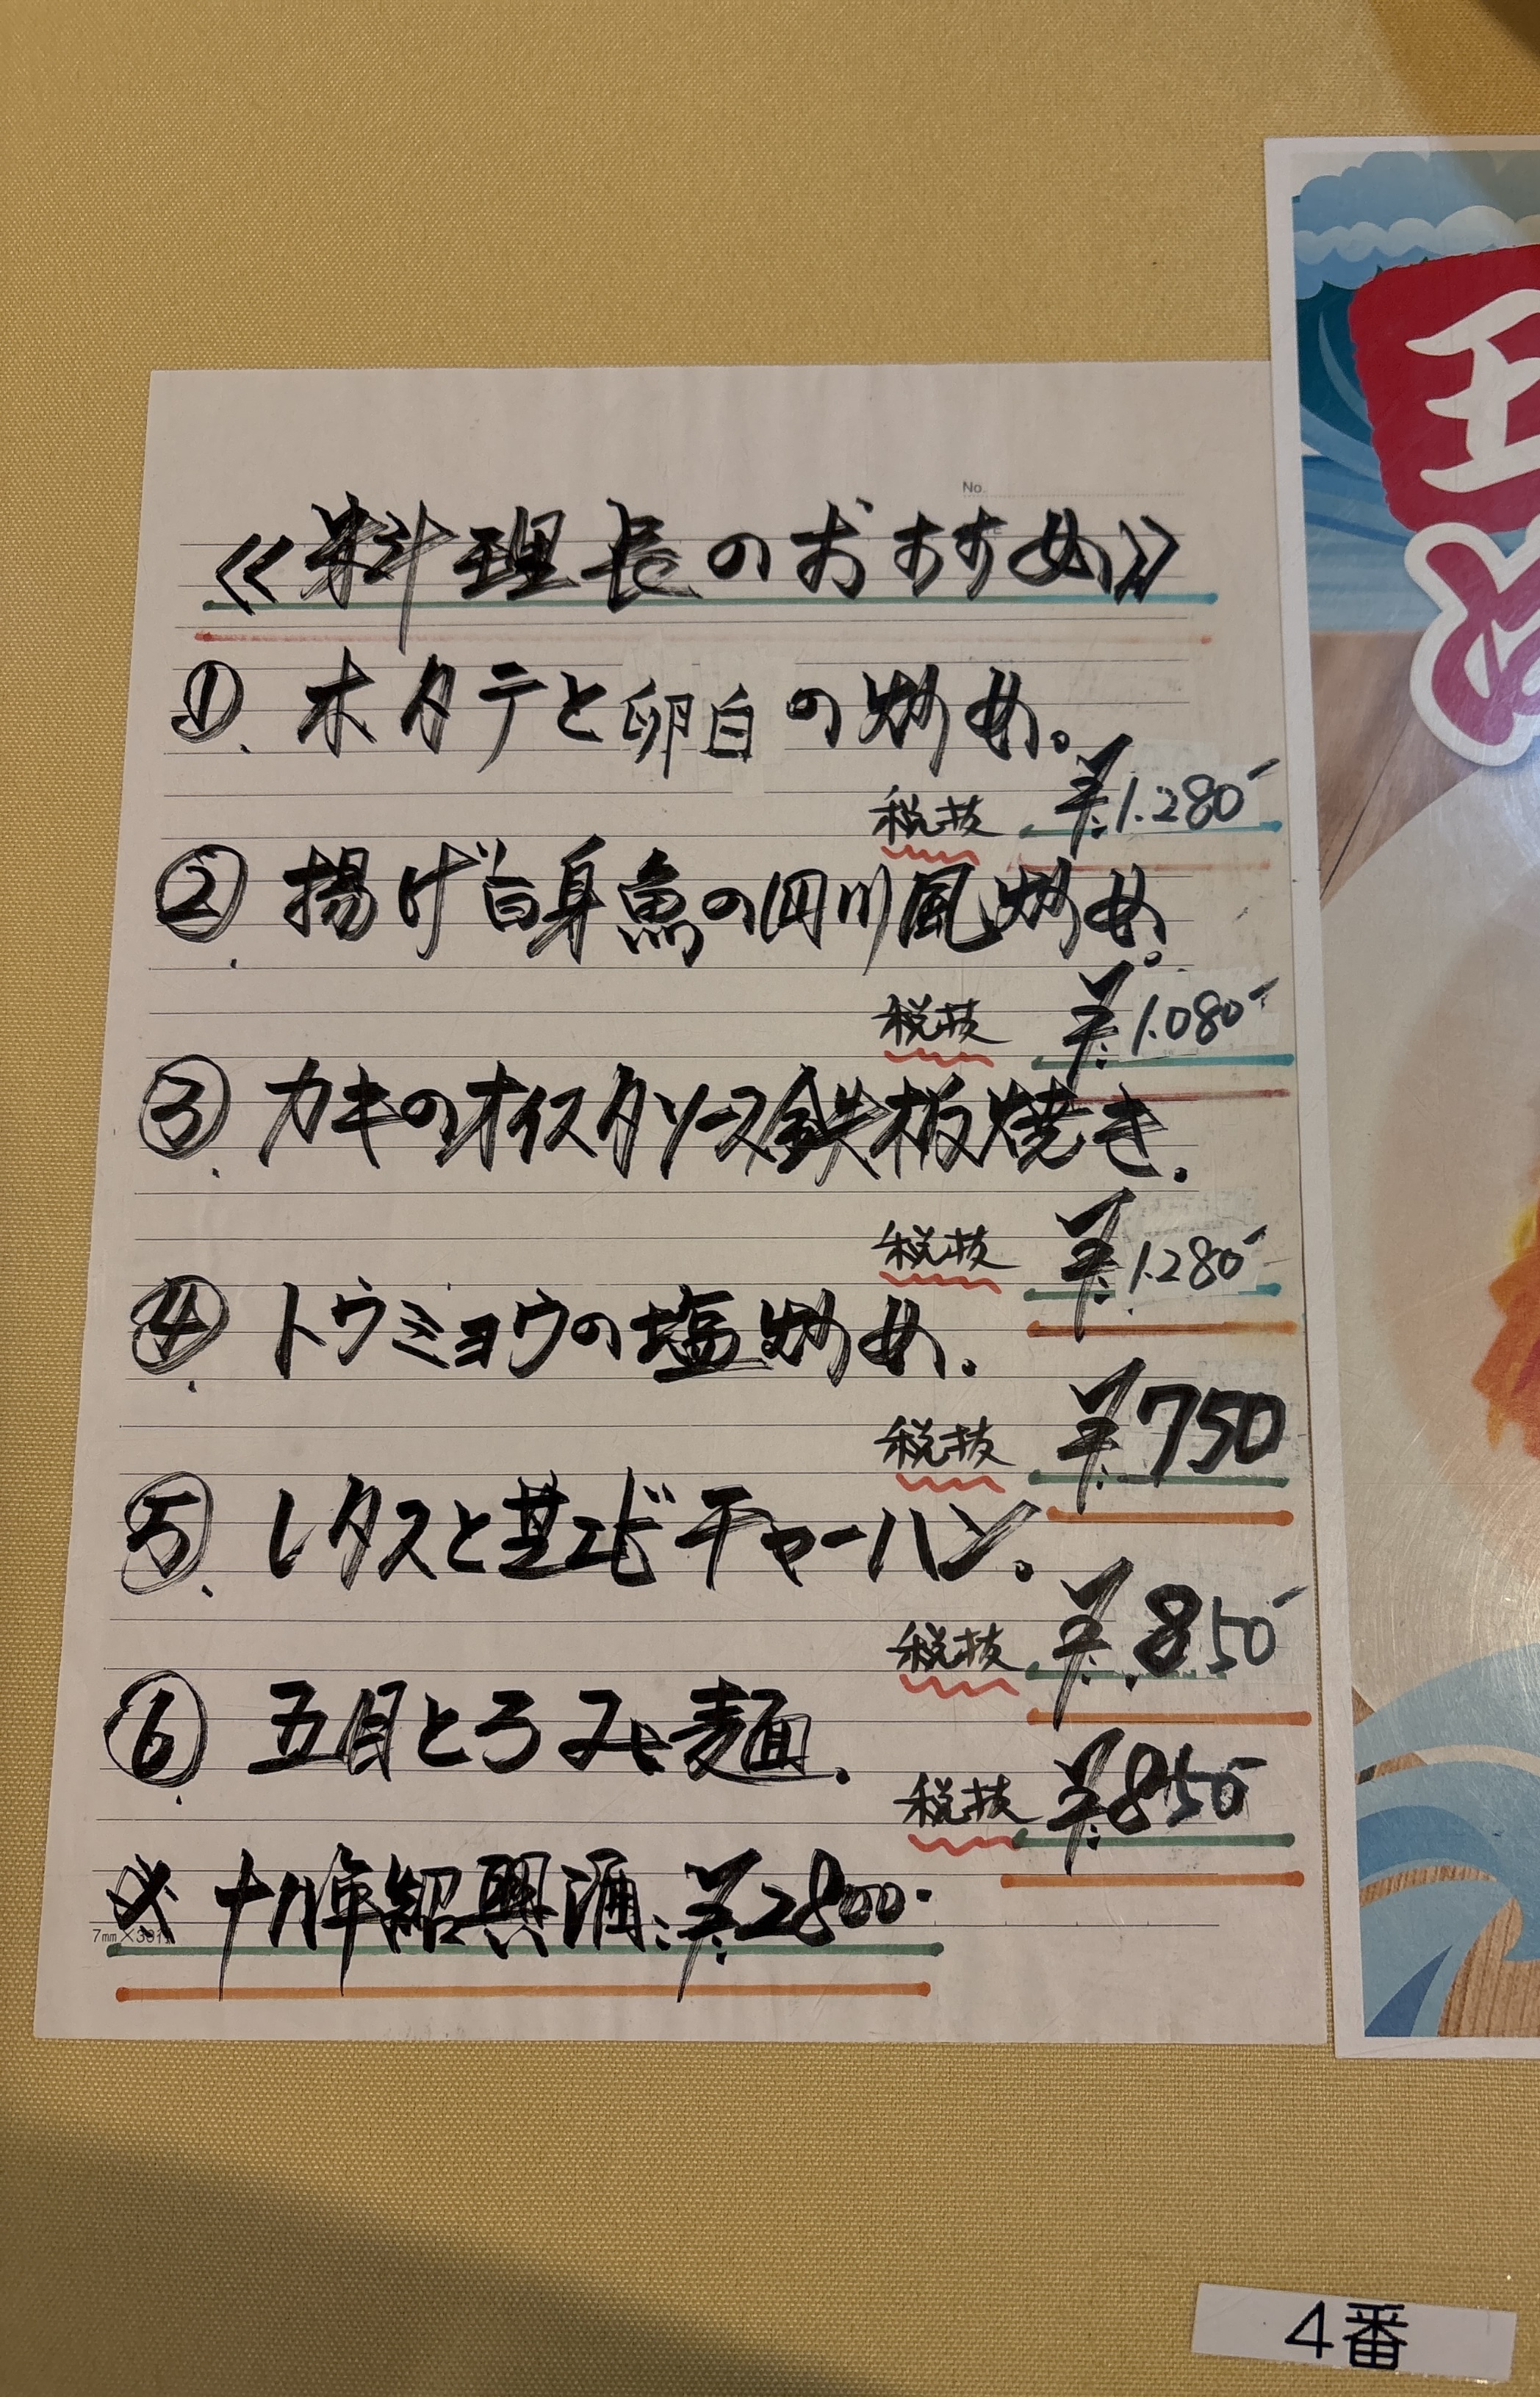 No.
《料理長のおすすめ》
①. ホタテと卵白の炒め。
税抜 ¥1.280-
②. 揚げ白身魚の四川風炒め。
税抜 ¥1.080-
③. カキのオイスタソース鉄板焼き.
税抜 ¥1.280-
④. トウミョウの塩炒め.
税抜 ¥750
⑤. レタスと芝エビチャーハン。
税抜 ¥.850-
⑥. 五目とろみ麺.
税抜 ¥850-
※ 十年紹興酒:¥2800-
4番